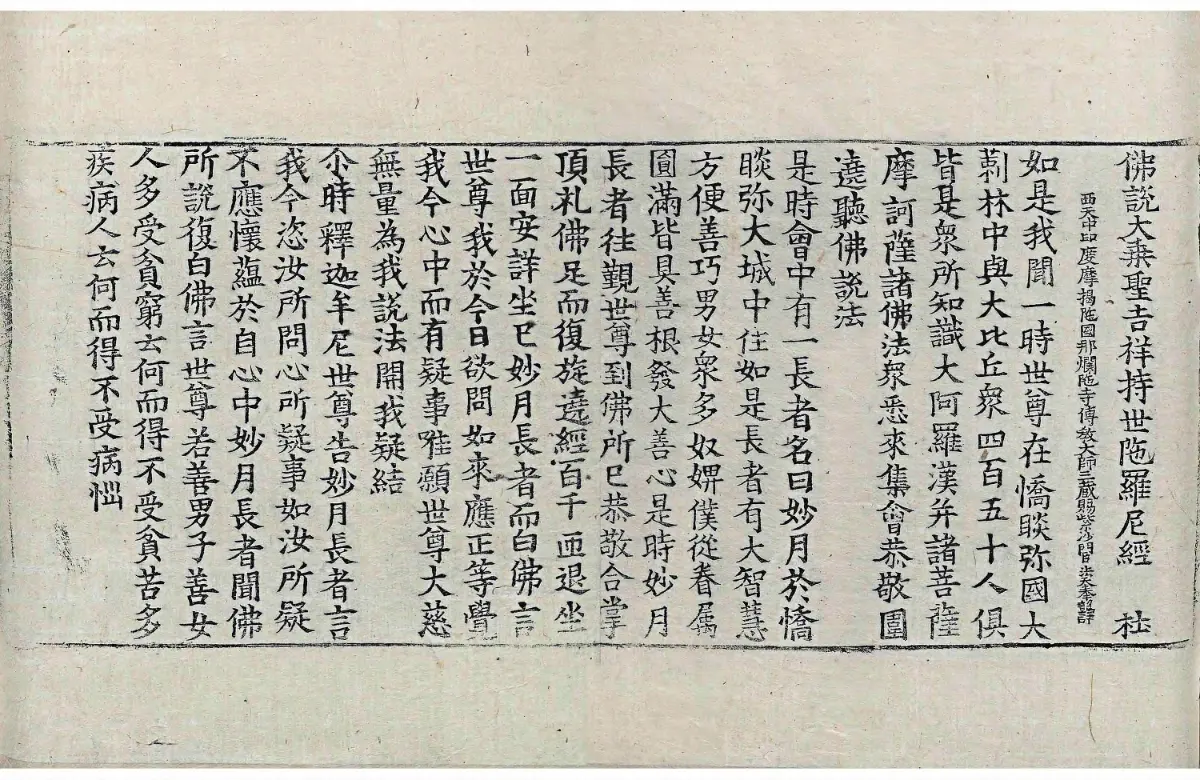 佛說大乘聖吉祥持世陁羅尼經 杜
西天中印度摩揭陁國那爛陁寺傳教大師三藏賜紫沙門臣法天奉詔譯
如是我聞一時世尊在憍睒弥國大
剌林中與大比丘眾四百五十人俱
皆是眾所知識大阿羅漢并諸菩薩
摩訶薩諸佛法眾悉來集會恭敬圍
遶聽佛說法
是時會中有一長者名曰妙月於憍
睒弥大城中住如是長者有大智慧
方便善巧男女眾多奴婢僕從眷属
圓滿皆具善根發大善心是時妙月
長者往觀世尊到佛所已恭敬合掌
頂礼佛足而復旋遶經百千匝退坐
一面安詳坐已妙月長者而白佛言
世尊我於今日欲問如來應正等覺
我今心中而有疑事唯願世尊大慈
無量為我說法開我疑結
尒時釋迦牟尼世尊告妙月長者言
我今恣汝所問心所疑事如汝所疑
不應懷蘊於自心中妙月長者聞佛
所說復白佛言世尊若善男子善女
人多受貧窮云何而得不受貧苦多
疾病人云何而得不受病惱